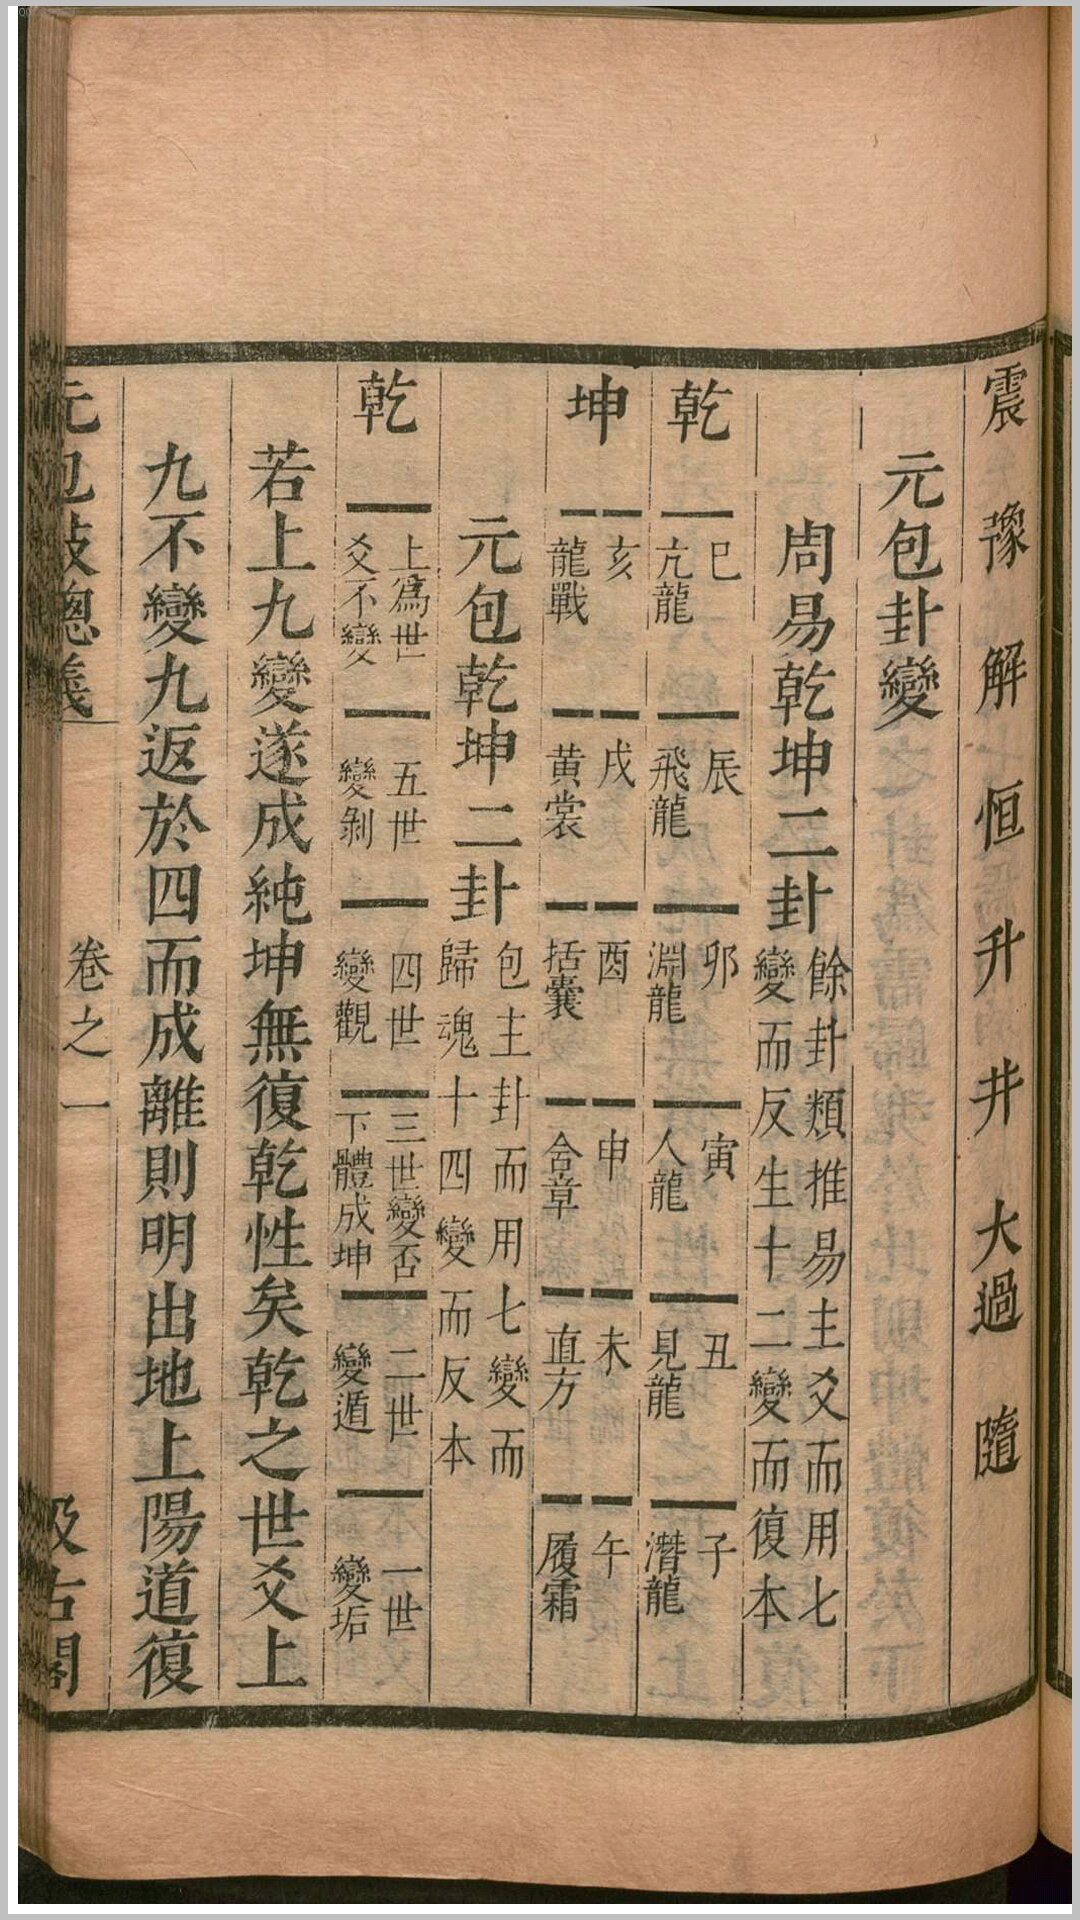 震 豫 解 恒 升 井 大過 隨
元包卦變
周易乾坤二卦 餘卦類推易主爻而用七
變而反生十二變而復本
乾 巳 亢龍 辰 飛龍 卯 淵龍 寅 人龍 丑 見龍 子 潛龍
坤 亥 龍戰 戌 黄裳 酉 括囊 申 含章 未 直方 午 履霜
元包乾坤二卦 包主卦而用七變而
歸魂十四變而反本
乾 上爲世爻不變 五世變剝 四世變觀 三世變否下體成坤 二世變遁 一世變垢
若上九變遂成純坤無復乾性矣乾之世爻上
九不變九返於四而成離則明出地上陽道復
元包數總義 卷之一 汲古閣